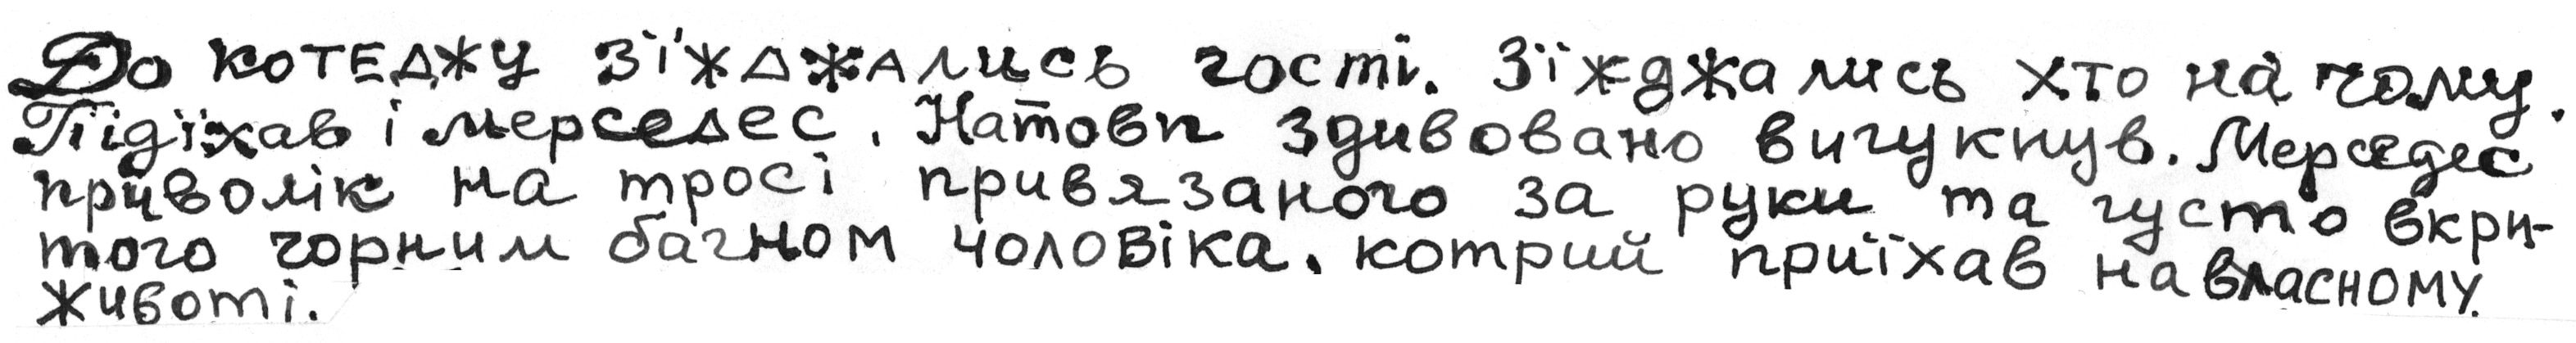 До котеджу зї'жджались гості. Зїжджались хто на чому.
Підїхав і мерседес. Натовп здивовано вигукнув. Мерседес
приволік на тросі привязаного за руки та густо вкри-
того чорним багном чоловіка. котрий приїхав на власному.
животі.